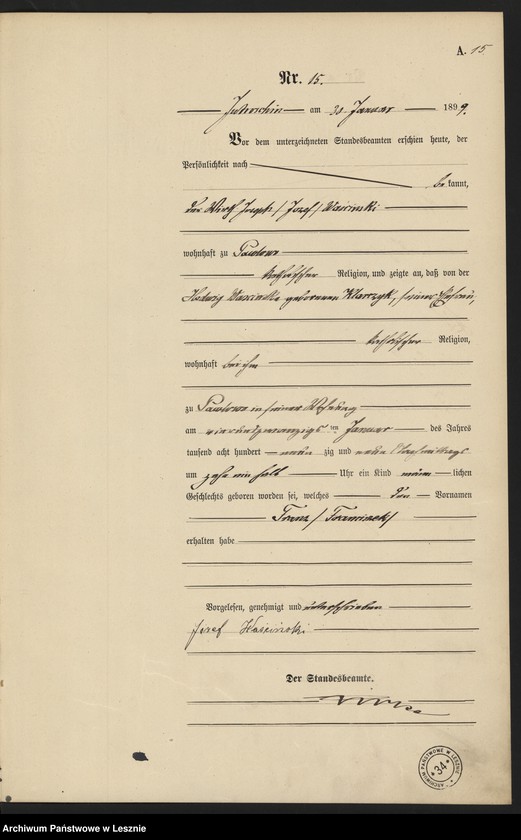 A. 15
Nr. 15.
Jutroschin am 30 Januar 1899.
Vor dem unterzeichneten Standesbeamten erschien heute, der
Persönlichkeit nach
bekannt,
der Wirth Joseph / Jozef /
wohnhaft zu Pawlowo
katholischer Religion, und zeigte an, daß von der
Hedwig geborenen seiner Ehefrau,
katholischer Religion,
wohnhaft bei ihm
zu Pawlowo in seiner Wohnung
am vierundzwanzigsten Januar des Jahres
tausend acht hundert neunzig und neun Nachmittags
um zehn ein halb Uhr ein Kind männlichen
Geschlechts geboren worden sei, welches den Vornamen
Franz / Franciszek /
erhalten habe
Vorgelesen, genehmigt und unterschrieben
Józef Waściński
Der Standesbeamte.
ARCHIWUM PAŃSTWOWE W LESZNIE
34
Archiwum Państwowe w Lesznie